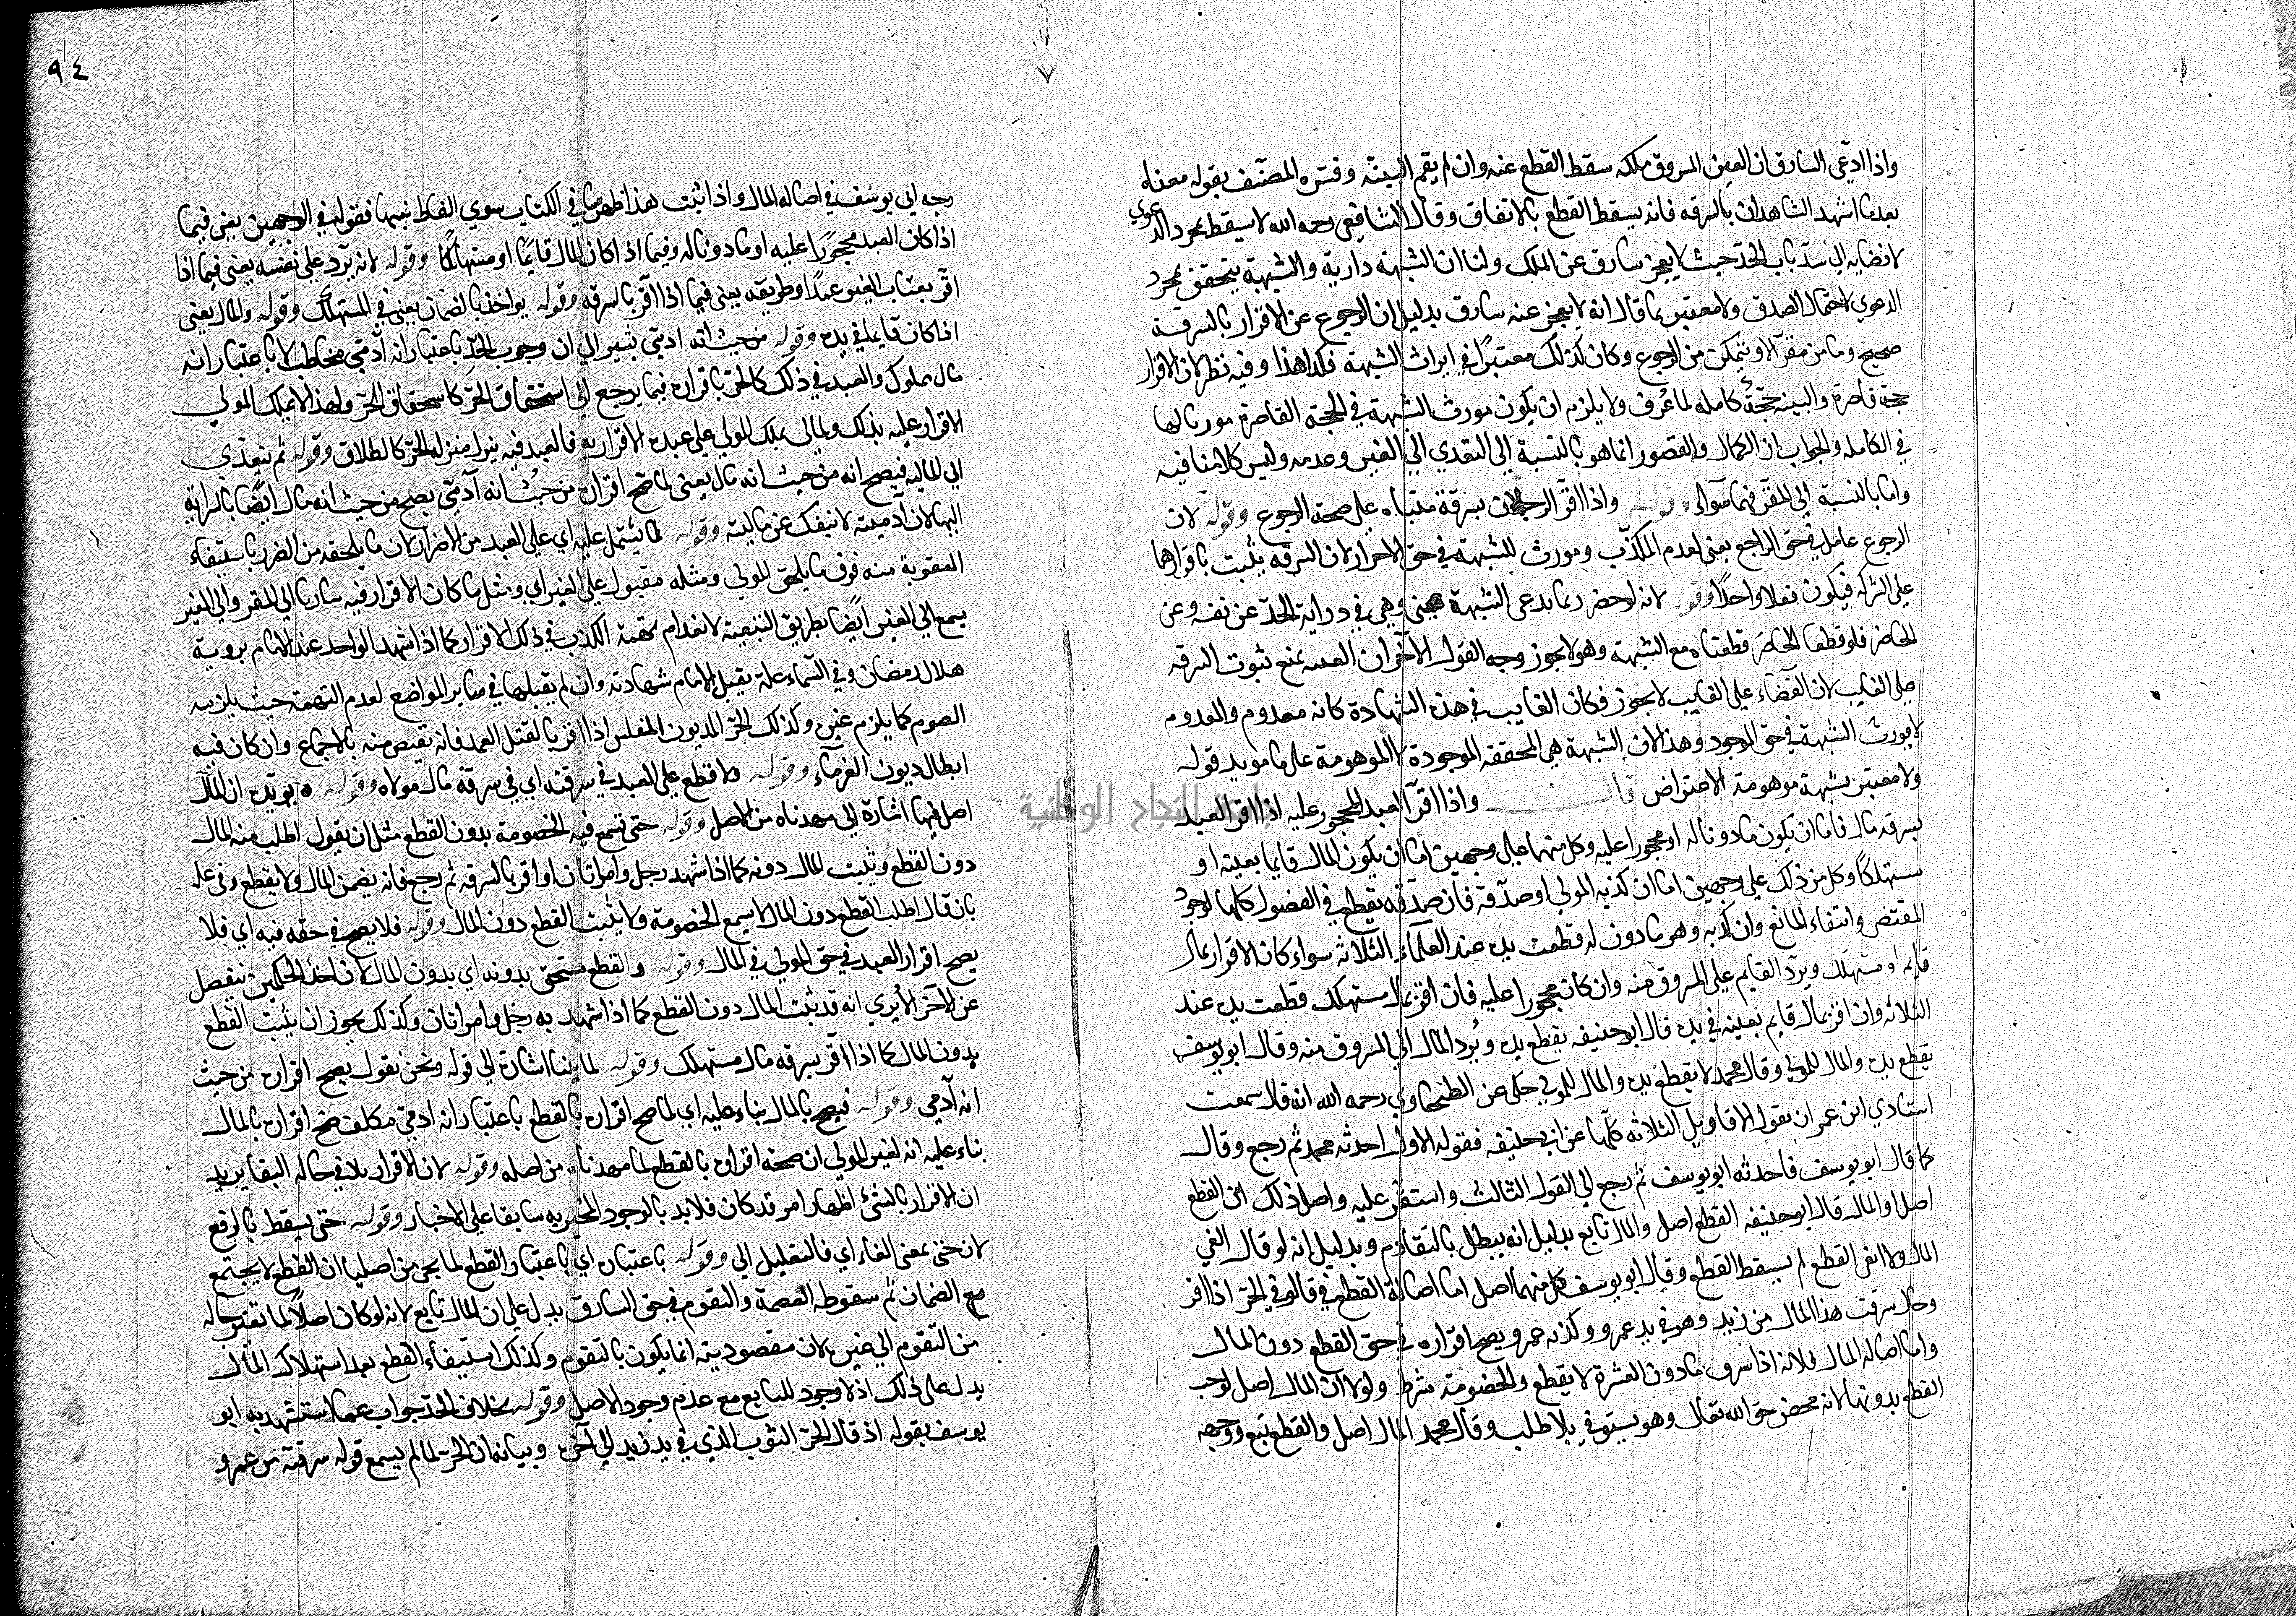 واذا ادّعى السارق ان العين المسروق ملكه سقط القطع عنه وان لم يقم البينة وفسّره المصنف بقوله معناه
بعد ما شهد الشاهدان بالسرقه فانه يسقط القطع بالاتفاق وقال الشافعي رحمه الله لا يسقط بمجرد الدعوي
لافضايه الى سدّ باب الحدّ حيث لا يعجز سارق عن الملك ولنا ان الشبهة دارية والشبهة يتحقق بمجرد
الدعوي لاحتمال الصدق ولا معتبر بما قال انه لا يعجز عنه سارق بدليل ان الرجوع عن الاقرار بالسرقة
صحيح وما من مقرّ الا ويتمكن من الرجوع وكان كذلك معتبرًا في ايراث الشبهة فكذا هذا وفيه نظر لان الاقرار
حجة قاصرة والبينه حجّة كامله لما عُرف ولا يلزم ان يكون مورث الشبهة في الحجة القاصرة مورثا لها
في الكامله والجواب ان الكمال والقصور انما هو بالنسبة الى التعدي الى الغير وعدمه وليس كلامنا فيه
واما بالنسبة الى المقرّ فهما سواء وقوله واذا اقرّ الرجلان بسرقة مبناه على صحة الرجوع وقوله لان
الرجوع عامل في حق الراجع يعنى لعدم المكذّب ومورث للشبهة في حق الاخر لان السرقه يثبت باقرارهما
على الشركه فيكون فعلا واحدًا وقوله لانه لو حضر ربما يدعى الشبهة يعنى وهي في دراية الحدّ عن نفسه وعن
الحاضر فلو قطعنا الحاضر قطعناه مع الشبهة وهو لا يجوز وجه القول الآخر ان الغيبه يمنع ثبوت السرقه
على الغايب لان القضاء على الغايب لا يجوز فكان الغايب في هذه الشهادة كانه معدوم والمعدوم
لا يورث الشبهة في حق الموجود وهذا لان الشبهة هي المحققه الموجودة لا الموهومة على ما مر يريد قوله
ولا معتبر بشبهة موهومة الاعتراض قال واذا اقرّ العبد المحجور عليه اذا اقر العبد
بسرقه مال فاما ان يكون ماذونا له او محجورا عليه وكل منهما على وجهين اما ان يكون المال قايما بعينه او
مستهلكًا وكل من ذلك على وجهين اما ان كذبه المولى او صدّقه فان صدّقه يقطع في الفصول كلها لوجود
المقتضى وانتفاء المانع وان كذّبه وهو ماذون له قطعت يده عند العلماء الثلاثه سواء كان الاقرار بمال
قايم او مستهلك ويردّ القايم على المسروق منه وان كان محجورا عليه فان اقر بمال مستهلك قطعت يده عند
الثلاثه وان اقر بمال قايم بعينه في يده قال ابو حنيفه يقطع يده ويُرد المال الى المسروق منه وقال ابو يوسف
يقطع يده والمال للمولى وقال محمد لا يقطع يده والمال للمولى حكى عن الطحاوي رحمه الله انه قال سمعت
استادي ابن عمران يقول الاقاويل الثلاثه كلها عن ابى حنيفه فقوله الاول احدثه محمد ثم رجع وقال
كما قال ابو يوسف فاحدثه ابو يوسف ثم رجع الى القول الثالث واستقر عليه واصل ذلك انّ القطع
اصل او المال قال ابو حنيفه القطع اصل والمال تابع بدليل انه يبطل بالتقادم وبدليل انه لو قال ابغي
المال ولا ابغى القطع لم يسقط القطع وقال ابو يوسف كل منهما اصل اما اصالة القطع فيما قالوا في الحرّ اذا اقر
وقال سرقت هذا المال من زيد وهو في يد عمرو وكذبه عمرو يصح اقراره في حق القطع دون المال
واما اصالة المال فلانه اذا سرق مادون العشرة لا يقطع والخصومة شرط ولولا ان المال اصل لوجب
القطع بدونها لانه محض حق الله تعالى وهو يستوفي بلا طلب وقال محمد المال اصل والقطع تبع ووجهه
٩٤
وجه ابى يوسف في اصاله المال واذا ثبت هذا ظهر ما في الكتاب سوي الفاظ ننبها فقوله في الوجهين يعنى فيما
اذا كان العبد محجورًا عليه او ماذونا له وفيما اذا كان المال قايمًا او مستهلكًا وقوله لانه يرد على نفسه يعنى فيما اذا
اقرّ بعتاب الغير عمدًا وطريقه يعنى فيما اذا اقرّ بالسرقه وقوله يواخذ بالضمان يعنى في المستهلك وقوله والمال يعنى
اذا كان قايما في يده وقوله من حيث انه ادمى يشير الى ان وجوب الحدّ باعتبار انه آدمى مخاطب لا باعتبار انه
مال مملوك والعبد في ذلك كالحرّ باقراره فيما يرجع الى استحقاق الحرّ كاستحقاق الحرّ ولهذا لا يملك المولي
الاقرار عليه بذلك ولما لم يملك المولى على عبده الاقرار به فالعبد فيه ينزل منزله الحرّ كالطلاق وقوله ثم يتعدى
الى الماليه فيصح انه من حيث انه مال يعنى لما صح اقراره من حيث انه آدمى يصح من حيث انه مال ايضًا بالسراية
اليها لان آدميته لا تنفك عن ماليته وقوله لما يشتمل عليه اي على العبد من الاضرار لان ما يلحقه من الضرر باستيفاء
العقوبة منه فوق ما يلحق المولى ومثله مقبول على الغير اي ومثل ما كان الاقرار فيه ساريا الى المقر والى الغير
يسمع الى الغير ايضًا بطريق التبعية لانعدام تهمة الكذب في ذلك الاقرار كما اذا شهد الواحد عند الامام بروية
هلال رمضان وفي السماء علة يقبل الامام شهادته وان لم يقبلها في ساير المواضع لعدم التهمة حيث يلزمه
الصوم كما يلزم غيره وكذلك الحرّ المديون المفلس اذا اقر بالقتل العمد فانه يقتص منه بالاجماع وان كان فيه
ابطال ديون الغرماء وقوله ولا قطع على العبد في سرقته اي في سرقة مال مولاه وقوله ويؤيده ان المال
اصل فيها اشارة الى ما مهدناه من الاصل وقوله حتى تسمع فيه الخصومة بدون القطع مثل ان يقول اطلب منه المال
دون القطع ويثبت المال دونه كما اذا شهد رجل وامراتان او اقر بالسرقه ثم رجع فانه يضمن المال ولا يقطع وفى عكسه
بان قال اطلب القطع دون المال لا يسمع الخصومة ولا يثبت القطع دون المال وقوله فلا يصح في حقه فيه اي فلا
يصح اقرار العبد في حق المولى في المال وقوله والقطع مستحق بدونه اي بدون المال لان احد الحكمين ينفصل
عن الآخر الا يري انه قد يثبت المال دون القطع كما اذا شهد به رجل وامراتان وكذلك يجوز ان يثبت القطع
بدون المال كما اذا اقر بسرقه مال مستهلك وقوله لما بينا اشارة الى قوله ونحن نقول يصح اقراره من حيث
انه آدمى وقوله فيصح بالمال بناء عليه اي لما صح اقراره بالقطع باعتبار انه ادمىّ مكلف صح اقراره بالمال
بناء عليه انه لغير المولى ان صحة اقراره بالقطع لما مهدناه من اصله وقوله لان الاقرار يلاقى حاله البقا يريد
ان الاقرار بالشئ اظهار امر قد كان فلا بد بالوجود المخبر به سابقا على الاخبار وقوله حتى يسقط بالرفع
لان حتى بمعنى الفاء اي فالتعليل الى وقوله باعتباره اي باعتبار القطع لما يجي من اصلنا ان القطع لا يجتمع
مع الضمان ثم سقوط العصمة والتقوم في حق السارق يدل على ان المال تابع لانه لو كان اصلًا لما تغير حاله
من التقوم الى غيره لان مقصوديته انما يكون بالتقوم وكذلك استيفاء القطع بعد استهلاك المال
يدل على ذلك اذ لا وجود للتابع مع عدم وجود الاصل وقوله بخلاف الحرّ جواب عما استشهد به ابو
يوسف بقوله اذ قال الحرّ الثوب الذي في يد زيد الى آخره وبيانه ان الحرّ لما لم يسمع قوله سرقته من عمرو